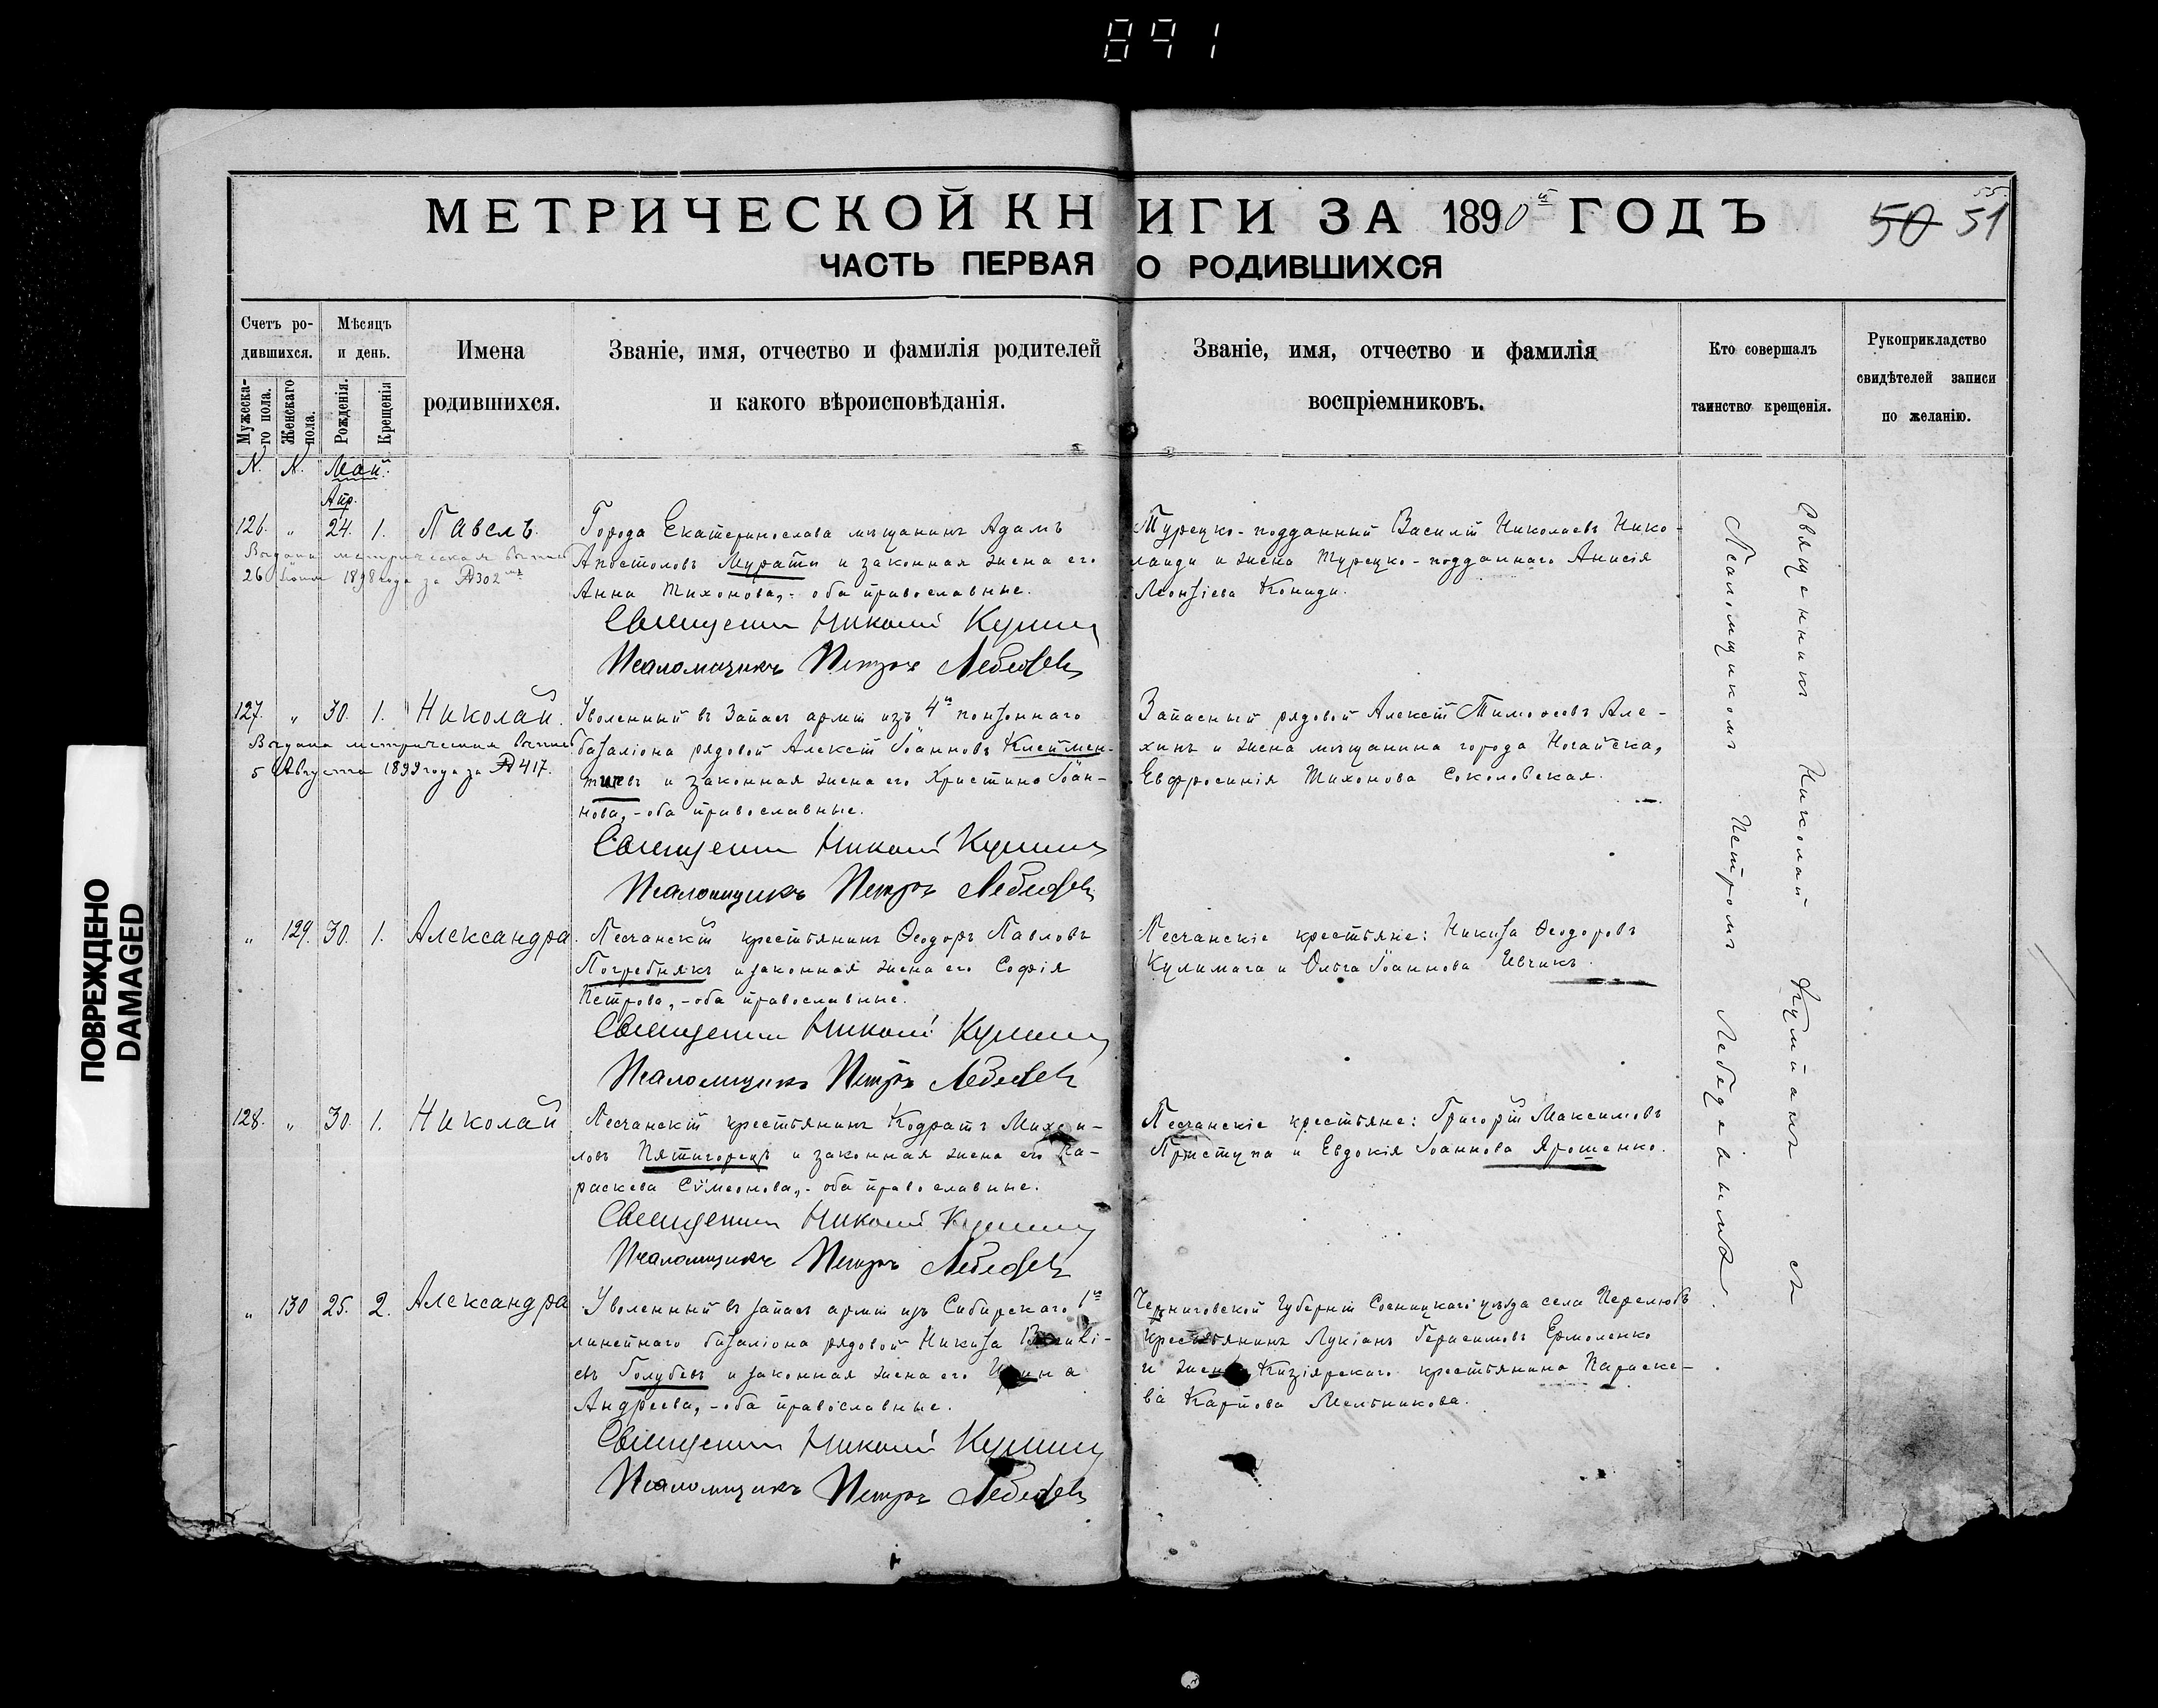 891
МЕТРИЧЕСКОЙ КНИГИ ЗА 1890й ГОДЪ
55.
50 51
ЧАСТЬ ПЕРВАЯ О РОДИВШИХСЯ
Счетъ ро-
дившихся.
Мужеска-
го пола.
Женскаго
пола.
Мѣсяцъ
и день.
Рожденія.
Крещенія
Имена
родившихся.
Званіе, имя, отчество и фамилія родителей
и какого вѣроисповѣданія.
Званіе, имя, отчество и фамилія
воспріемниковъ.
Кто совершалъ
таинство крещенія.
Рукоприкладство
свидѣтелей записи
по желанію.
N. N. Май.
Апр.
126. " 24. 1. Павелъ.
Выдана метрическая выпись
26 1898 года за №302
Города Екатеринослава мѣщанинъ Адамъ
Апостоловъ Мурати и законная жена его
Анна Тихонова,- оба православные.
Священникъ Николай
Псаломщикъ Петръ Лебедевъ
Турецко-подданный Василій Николаевъ Нико-
лаиди и жена Турецко-подданнаго Анисія
Леонтіева Кониди.
127. " 30. 1. Николай.
Выдана метрическая выпись
5 Августа 1899 года за №417.
Уволенный въ Запасъ арміи изъ 4го понтоннаго
баталіона рядовой Алексій Іоанновъ Клеймен-
тьевъ и законная жена его Христина Іоан-
нова,-оба православные.
Священникъ Николай
Псаломщикъ Петръ Лебедевъ
Запасный рядовой Алексій Тимофеевъ Але-
хинъ и жена мѣщанина города Ногайска,
Евфросинія Тихонова Соколовская.
" 129. 30. 1. Александра.
Песчанскій крестьянинъ Ѳеодоръ Павловъ
Погребнякъ и законная жена его Софія
Петрова,-оба православные.
Священникъ Николай
Псаломщикъ Петръ Лебедевъ
Песчанскіе крестьяне: Никита Ѳеодоровъ
Кулимага и Ольга Іоаннова Ивчикъ.
128. " 30. 1. Николай
Песчанскій крестьянинъ Кодратъ Михаи-
ловъ Пятигорецъ и законная жена его Па-
раскева Сѵмеонова,-оба православные.
Священникъ Николай
Псаломщикъ Петръ Лебедевъ
Песчанскіе крестьяне: Григорій Максимовъ
Приступа и Евдокія Іоаннова Ярошенко.
" 130 25. 2. Александра
Уволенный въ запасъ арміи изъ Сибирскаго 1го
линейнаго баталіона рядовой Никита
евъ Голубевъ и законная жена его Ирина
Андреева,-оба православные.
Священникъ Николай
Псаломщикъ Петръ Лебедевъ
Черниговской Губерніи Сосницкаго уѣзда села Перелюбъ
крестьянинъ Лукіанъ Герасимовъ Ермоленко
и жена Кизіярскаго крестьянина Параске-
ва Карпова Мельникова.
Священникъ Николай съ
Псаломщикомъ Петромъ Лебедевымъ.
ПОВРЕЖДЕНО
DAMAGED